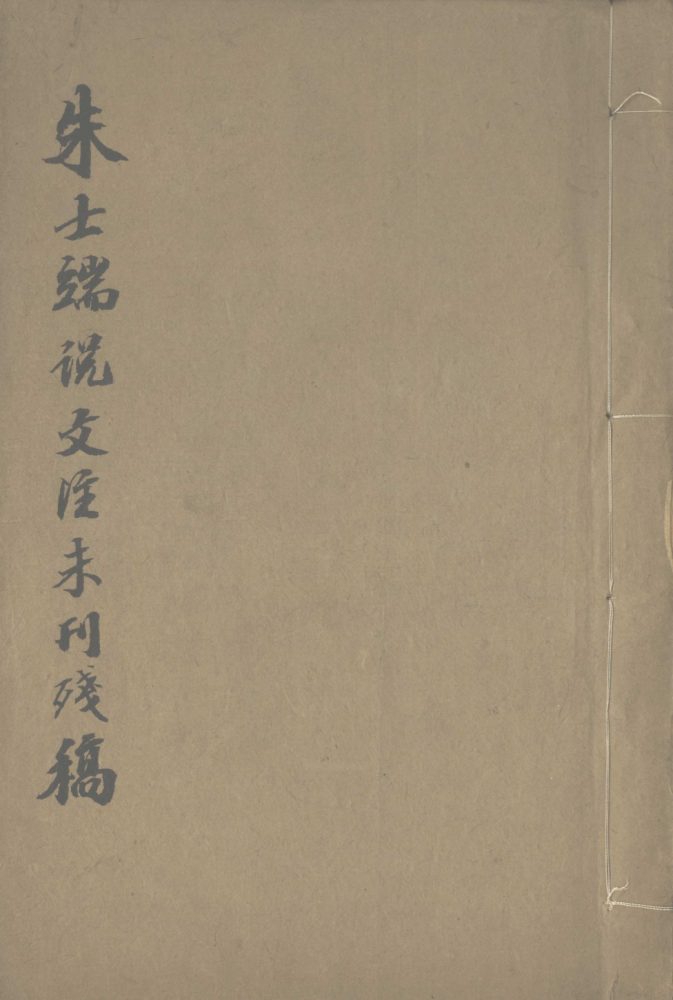 朱士端說文注未刊殘稿